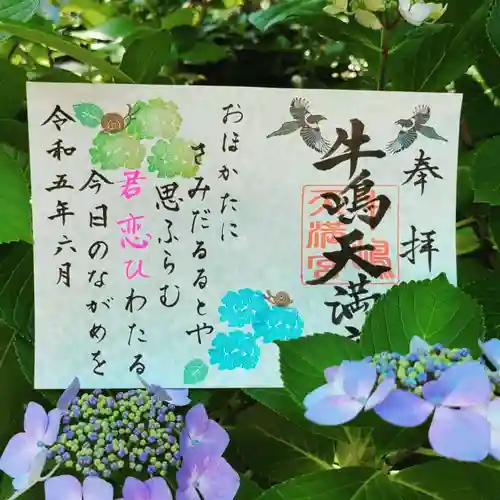 奉拝
牛鳴天満
おほかたに
さみだるるとや
思ふらむ
君恋ひわたる
今日のながめを
令和五年六月